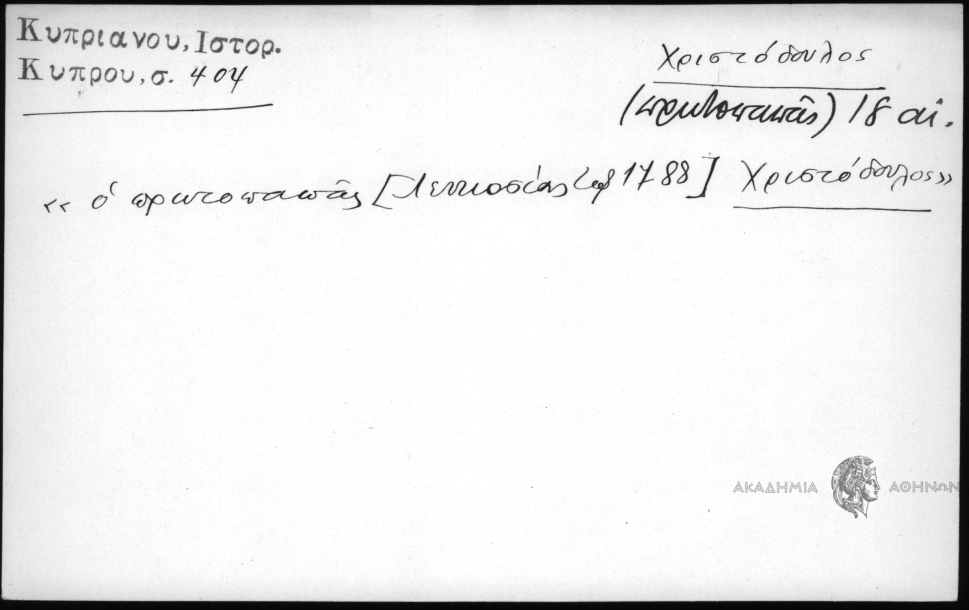 Κυπριανου, Ιστορ.
Κυπρου, σ. 404
Χριστόδουλος
(πρωτοπαπᾶς) 18 αἰ.
« ὁ πρωτοπαπᾶς [Λευκοσίας τῷ 1788] Χριστόδουλος»
ΑΚΑΔΗΜΙΑ ΑΘΗΝΩΝ